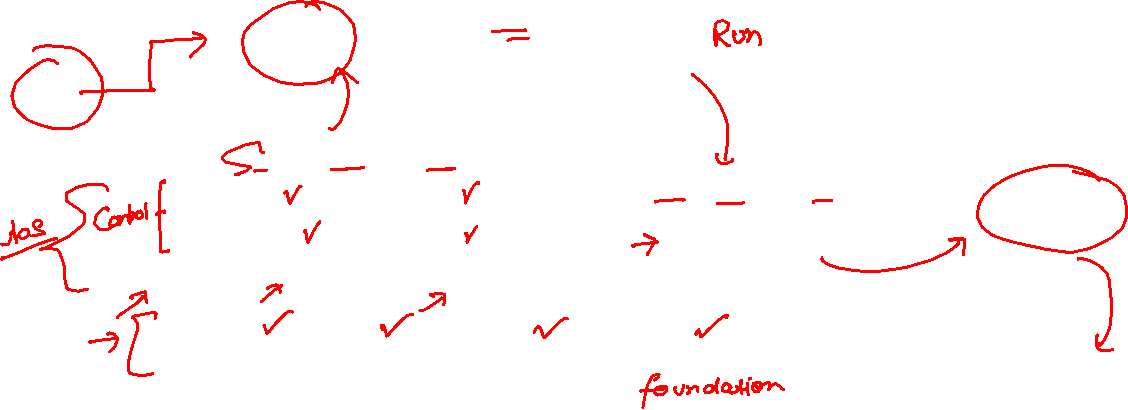 Run
Control
foundation